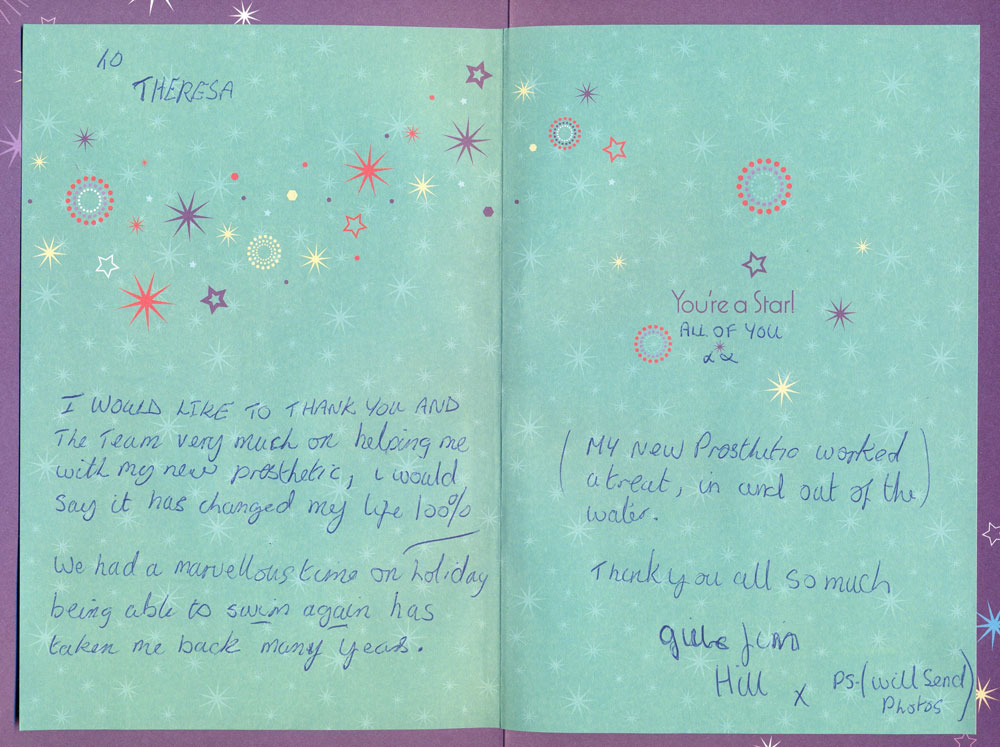 to
THERESA
I WOULD LIKE TO THANK YOU AND
The Team very much on helping me
with my new prosthetic, i would
say it has changed my life 100%
We had a marvellous time on holiday
being able to swim again has
taken me back many years.
You're a Star!
ALL OF YOU
xx
(MY NEW Prosthetic worked
a treat, in and out of the)
water.
Thank you all so much
Hill x
PS-(will Send
Photos)